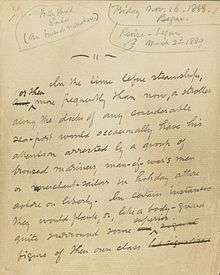 Billy Budd
Sailor
(An inside narrative)
Friday Nov. 16. 1888.
Began.
Revise - began
March 2d 1889
or then In the time before steamships,
more frequently than now, a stroller
along the docks of any considerable
sea-port would occasionally have his
attention arrested by a group of
bronzed mariners, man-of-war's men
or merchant-sailors in holiday attire
ashore on liberty. In certain instances
they would flank, or, like a body-guard
quite surround some superior
figure of their own class